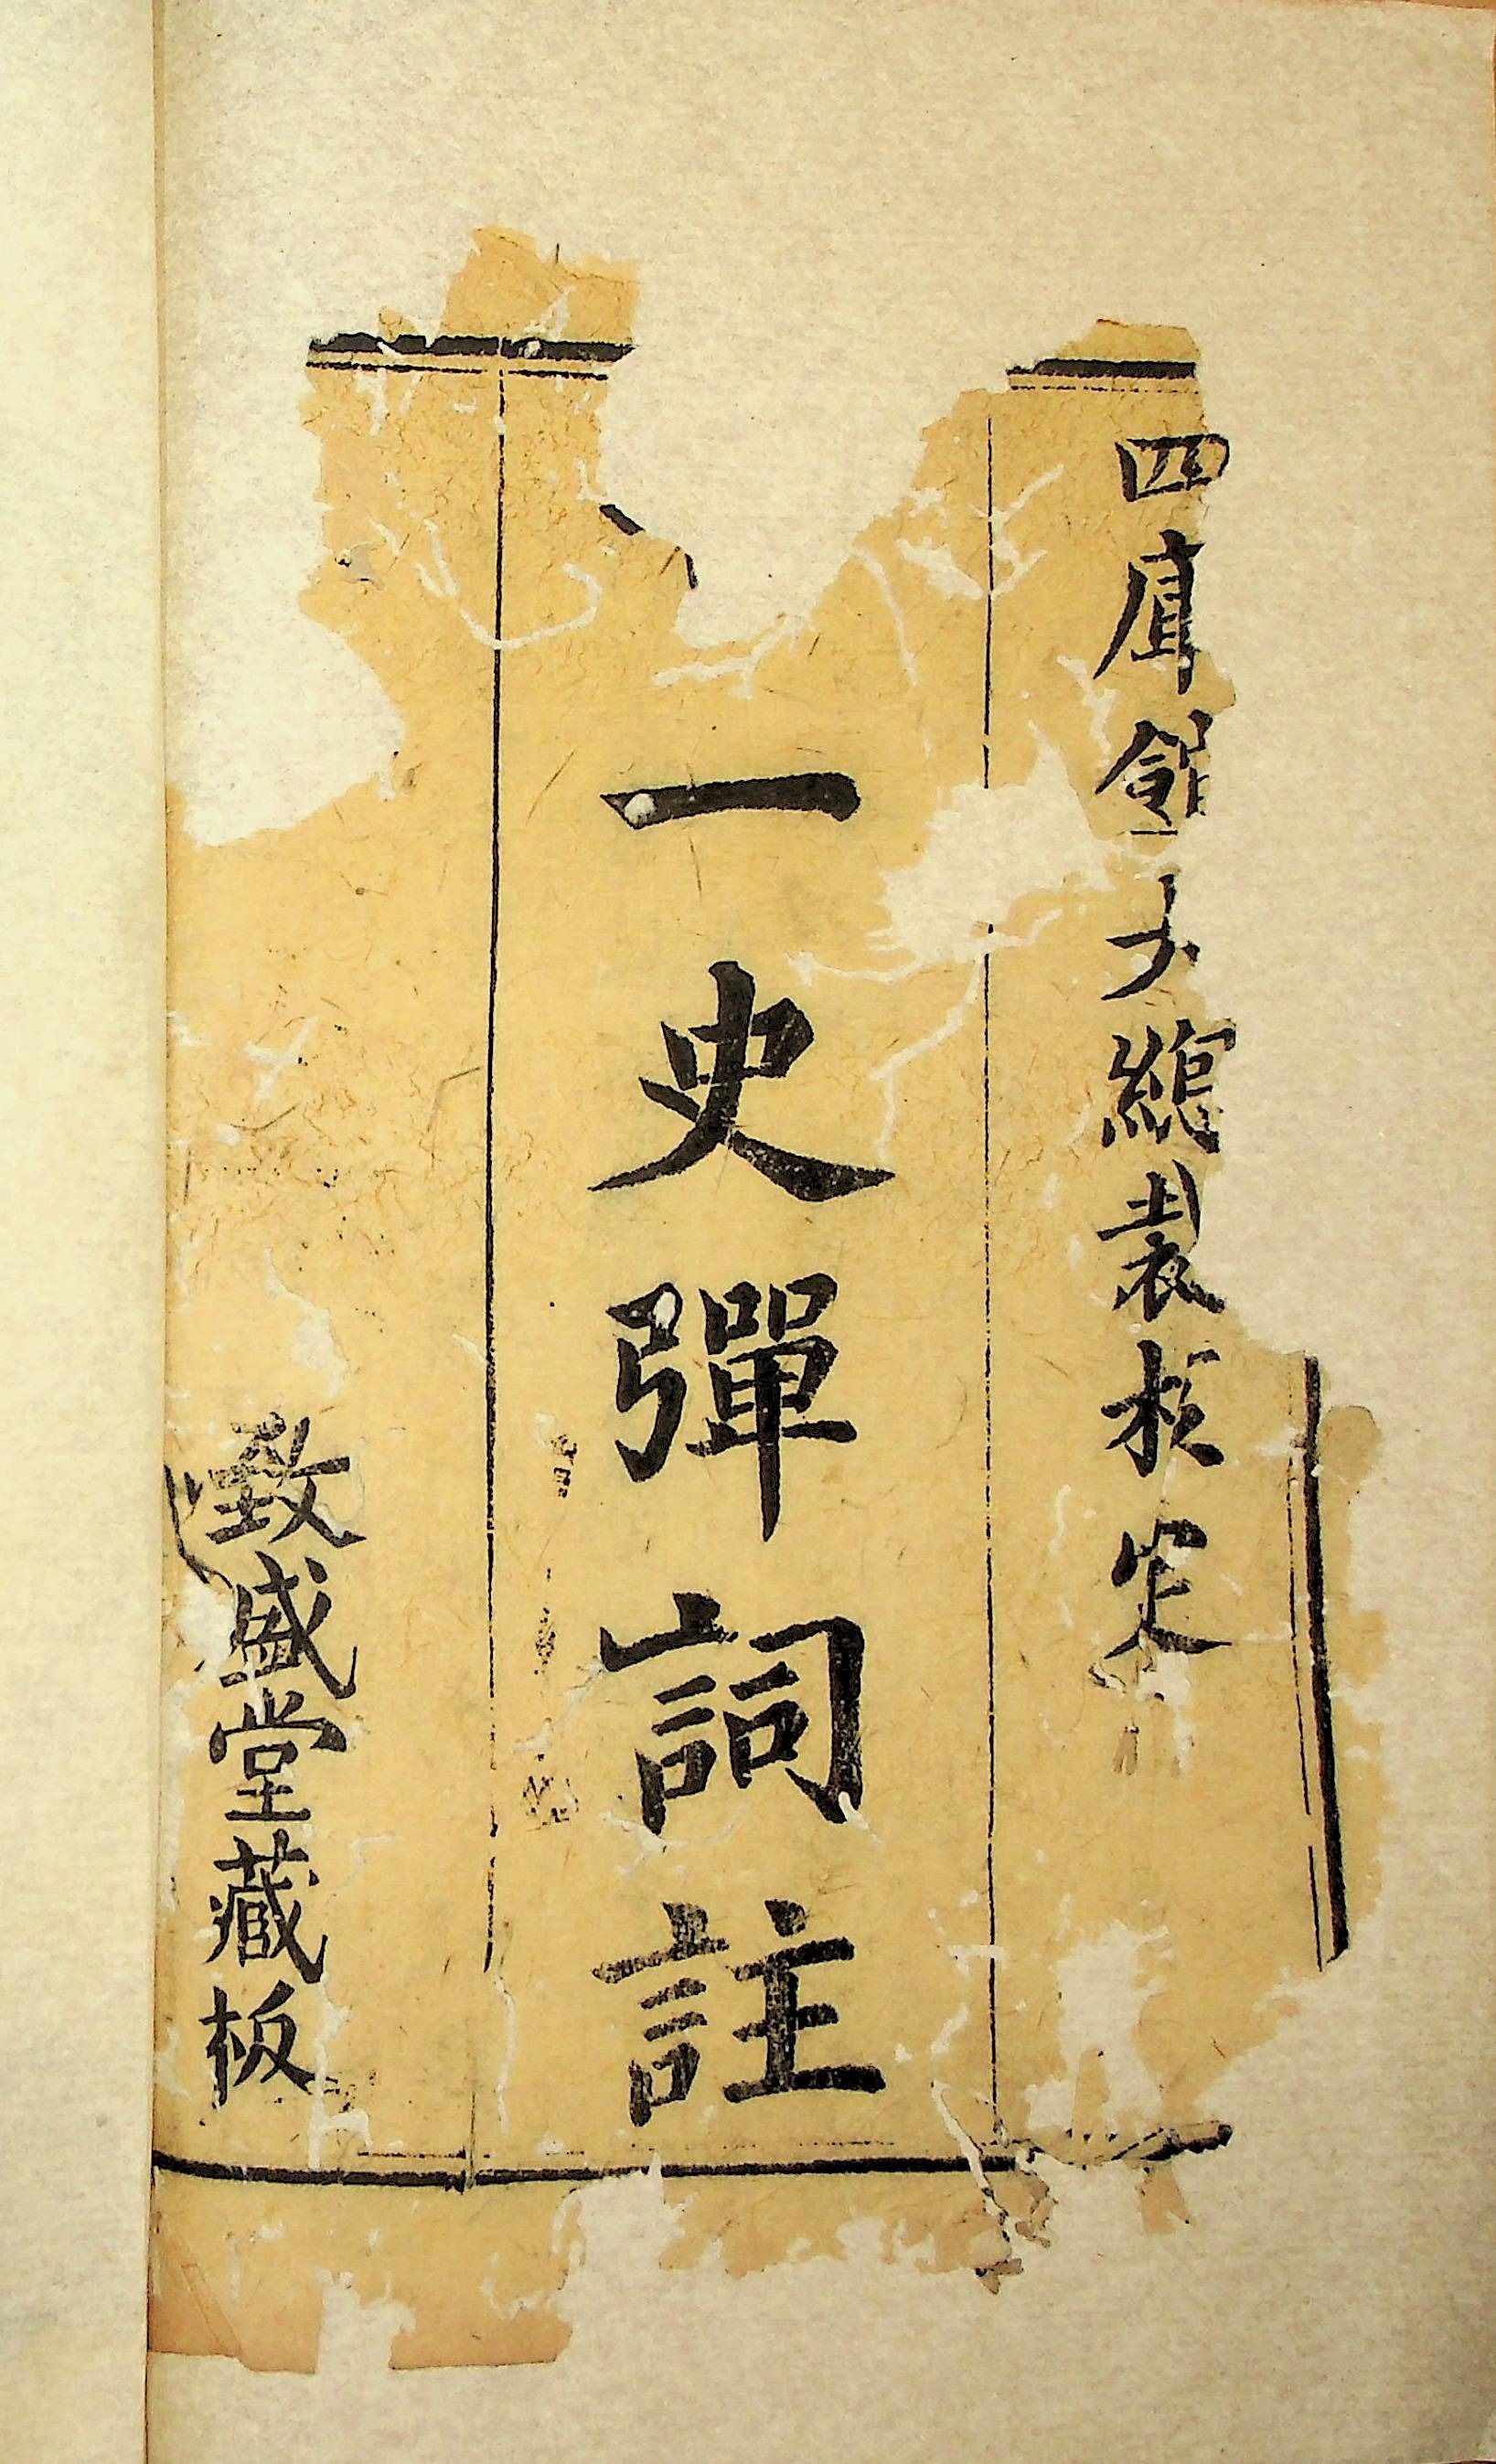 四庫館大總裁核定
一史彈詞註
致盛堂藏板